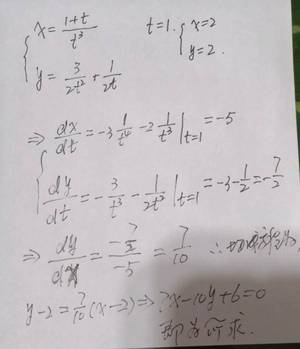 { x = (1+t)/t³    t=1. { x=2
y = 3/(2t²) + 1/(2t)    y=2.
⇒ { dx/dt = -3 1/t⁴ - 2 1/t³ |t=1 = -5
dy/dt = -3/t³ - 1/(2t²) |t=1 = -3 - 1/2 = -7/2
⇒ dy/dx = /-5 = 7/10 ∴切线方程为,
y-2 = 7/10 (x-2) ⇒ 7x-10y+6=0
即为所求.